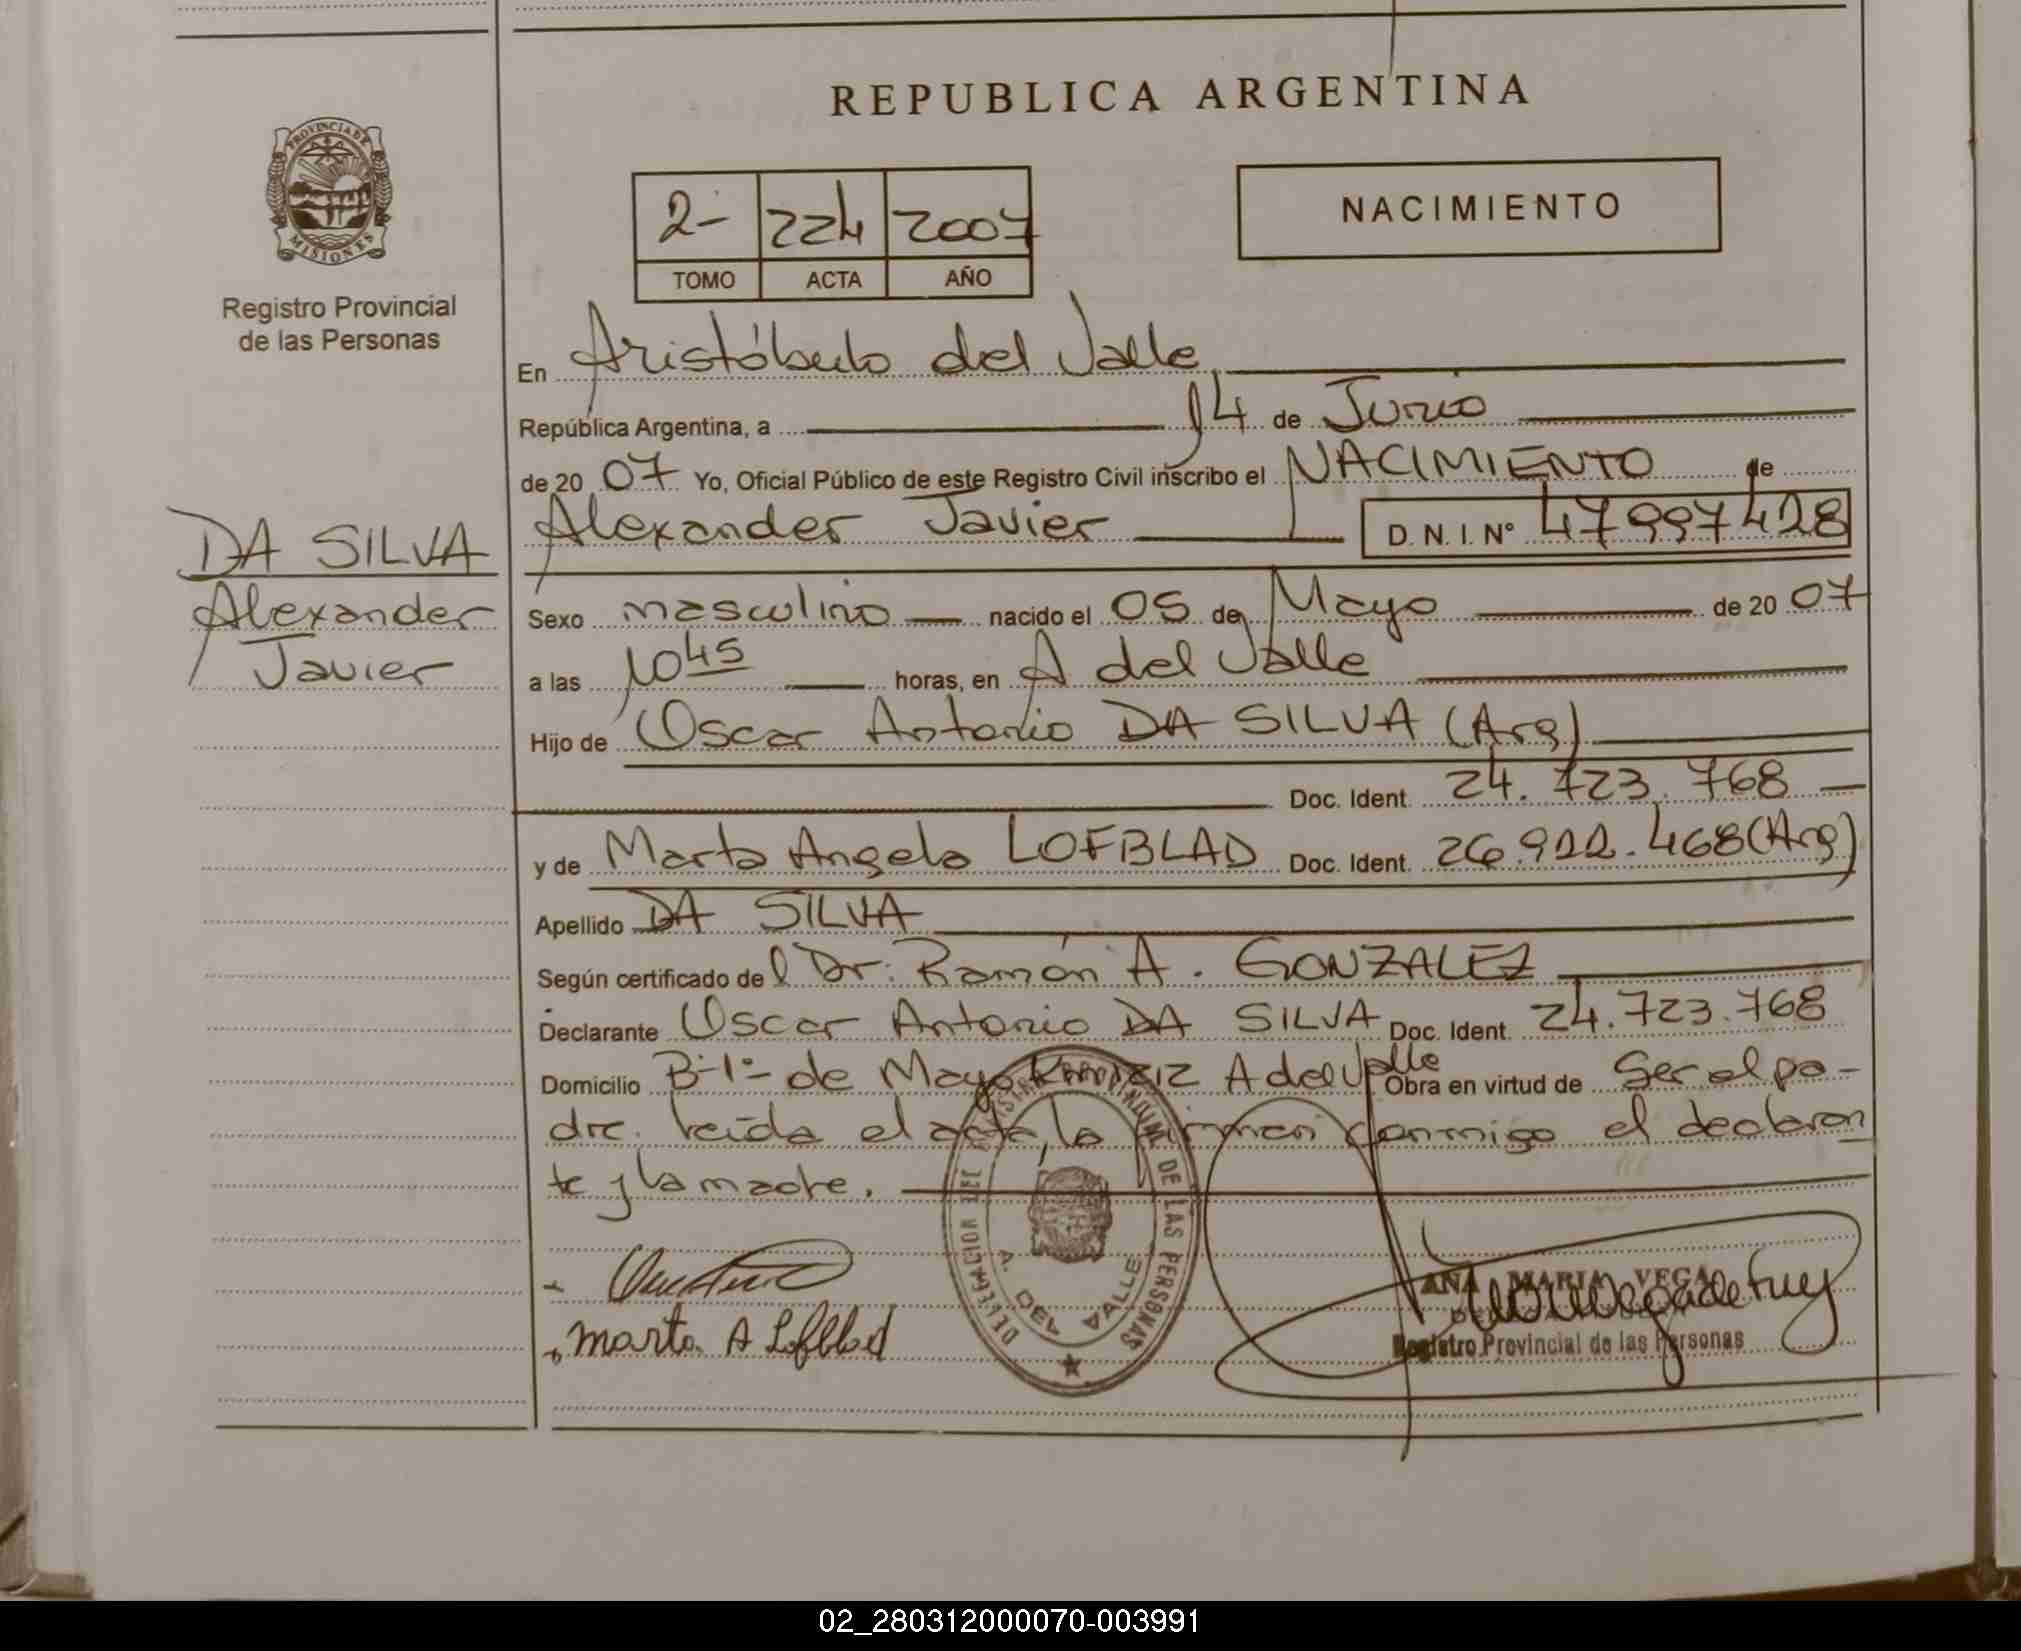 REPUBLICA ARGENTINA
PROVINCIA DE MISIONES
Registro Provincial
de las Personas
NACIMIENTO
2- 224 2007
TOMO ACTA AÑO
En Aristóbulo del Valle
República Argentina, a 14 de Junio
de 2007 Yo, Oficial Público de este Registro Civil inscribo el NACIMIENTO de
Alexander Javier D.N.I. Nº 47997428
DA SILVA
Alexander
Javier
Sexo masculino nacido el 05 de Mayo de 2007
a las 10 45 horas, en A del Valle
Hijo de Oscar Antonio DA SILVA (Arg)
Doc. Ident. 24.723.768
y de Marta Angela LOFBLAD Doc. Ident. 26.922.468 (Arg)
Apellido DA SILVA
Según certificado del Dr. Ramón A. GONZALEZ
Declarante Oscar Antonio DA SILVA Doc. Ident. 24.723.768
Domicilio B-1º de Mayo A del Valle Obra en virtud de Ser el pa-
dre. Leída el acta, la firman conmigo el declaran
te y la madre.
Marta A Lofblad
DELEGACION DEL REGISTRO PROVINCIAL DE LAS PERSONAS
A. DEL VALLE
ANA MARIA VEGA
Registro Provincial de las Personas
02_280312000070-003991